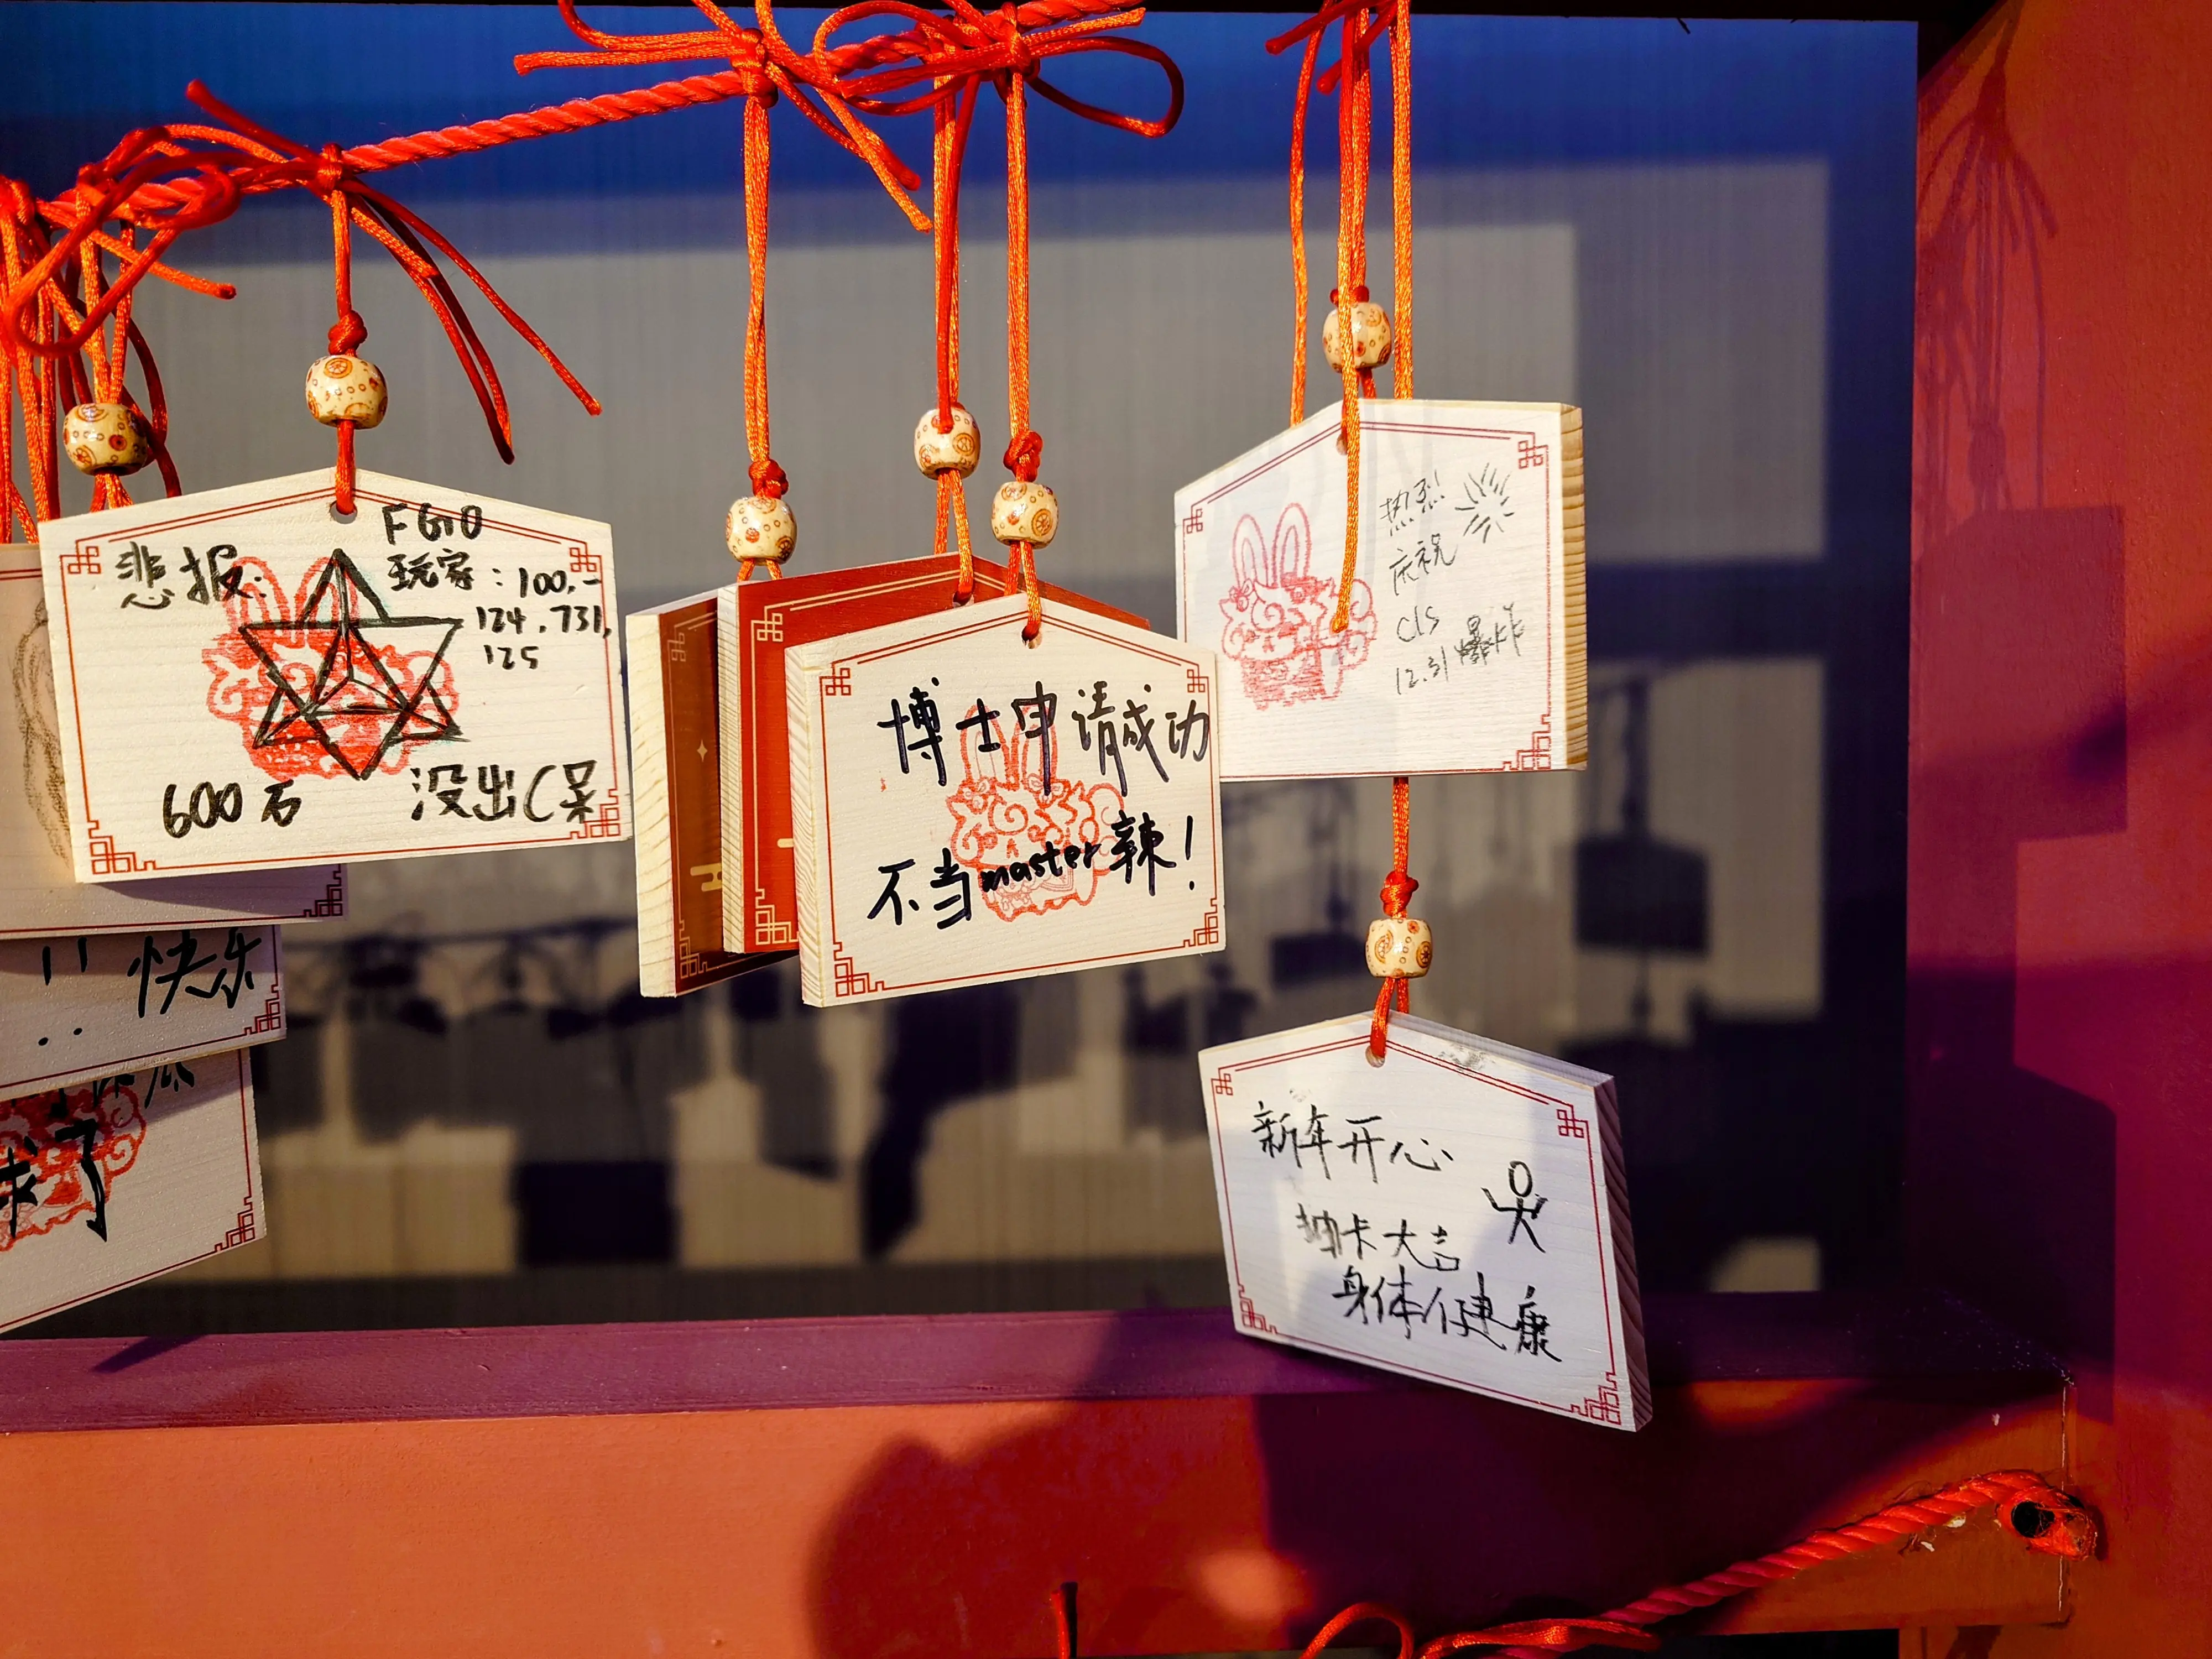 悲报:
FGO
玩家:100,-
124,731,
125
600石
没出C呆
!! 快乐
了
博士申请成功
不当master辣!
热烈
庆祝
cls
12.31爆炸
新年开心
抽卡大吉
身体健康